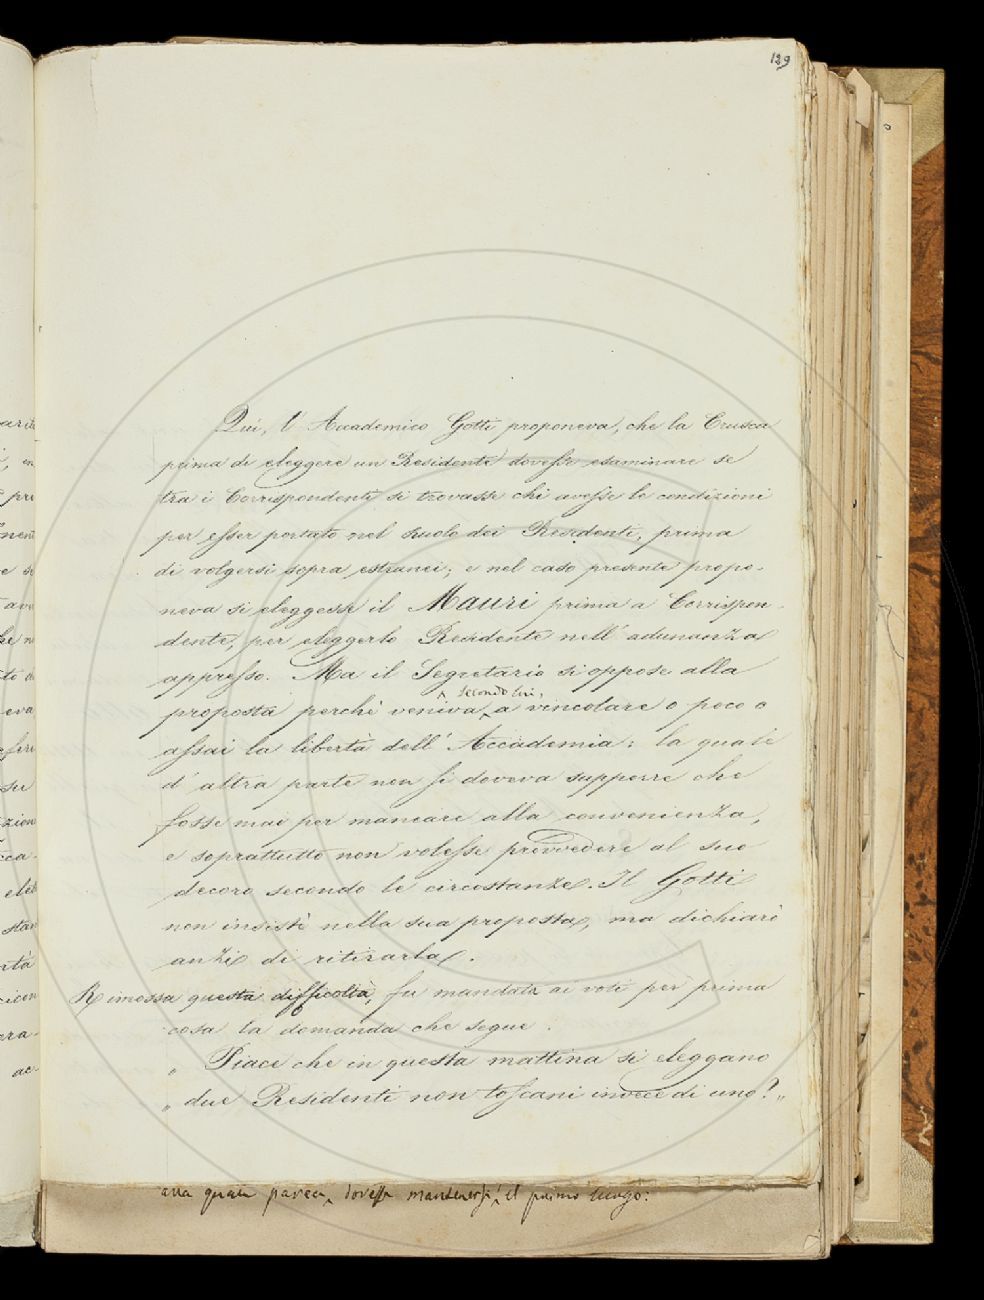 129
Qui, l'Accademico Gotti proponeva, che la Crusca
prima di eleggere un Residente dovesse esaminare se
tra i Corrispondenti si trovasse chi avesse le condizioni
per esser portato nel ruolo dei Residenti, prima
di volgersi sopra estranei; e nel caso presente propo-
neva si eleggesse il Mauri prima a Corrispon-
dente, per eleggerlo Residente nell'adunanza
appresso. Ma il Segretario si oppose alla
secondo lui,
proposta perché veniva a vincolare o poco o
assai la libertà dell'Accademia: la quale
d'altra parte non si doveva supporre che
fosse mai per mancare alla convenienza,
e soprattutto non volesse provvedere al suo
decoro secondo le circostanze. Il Gotti
non insisté nella sua proposta, ma dichiarò
anzi di ritirarla.
Rimossa questa difficoltà, fu mandata ai voti per prima
cosa la domanda che segue.
„ Piace che in questa mattina si eleggano
„ due Residenti non toscani invece di uno? „
parea dovesse mantenersi il primo luogo: